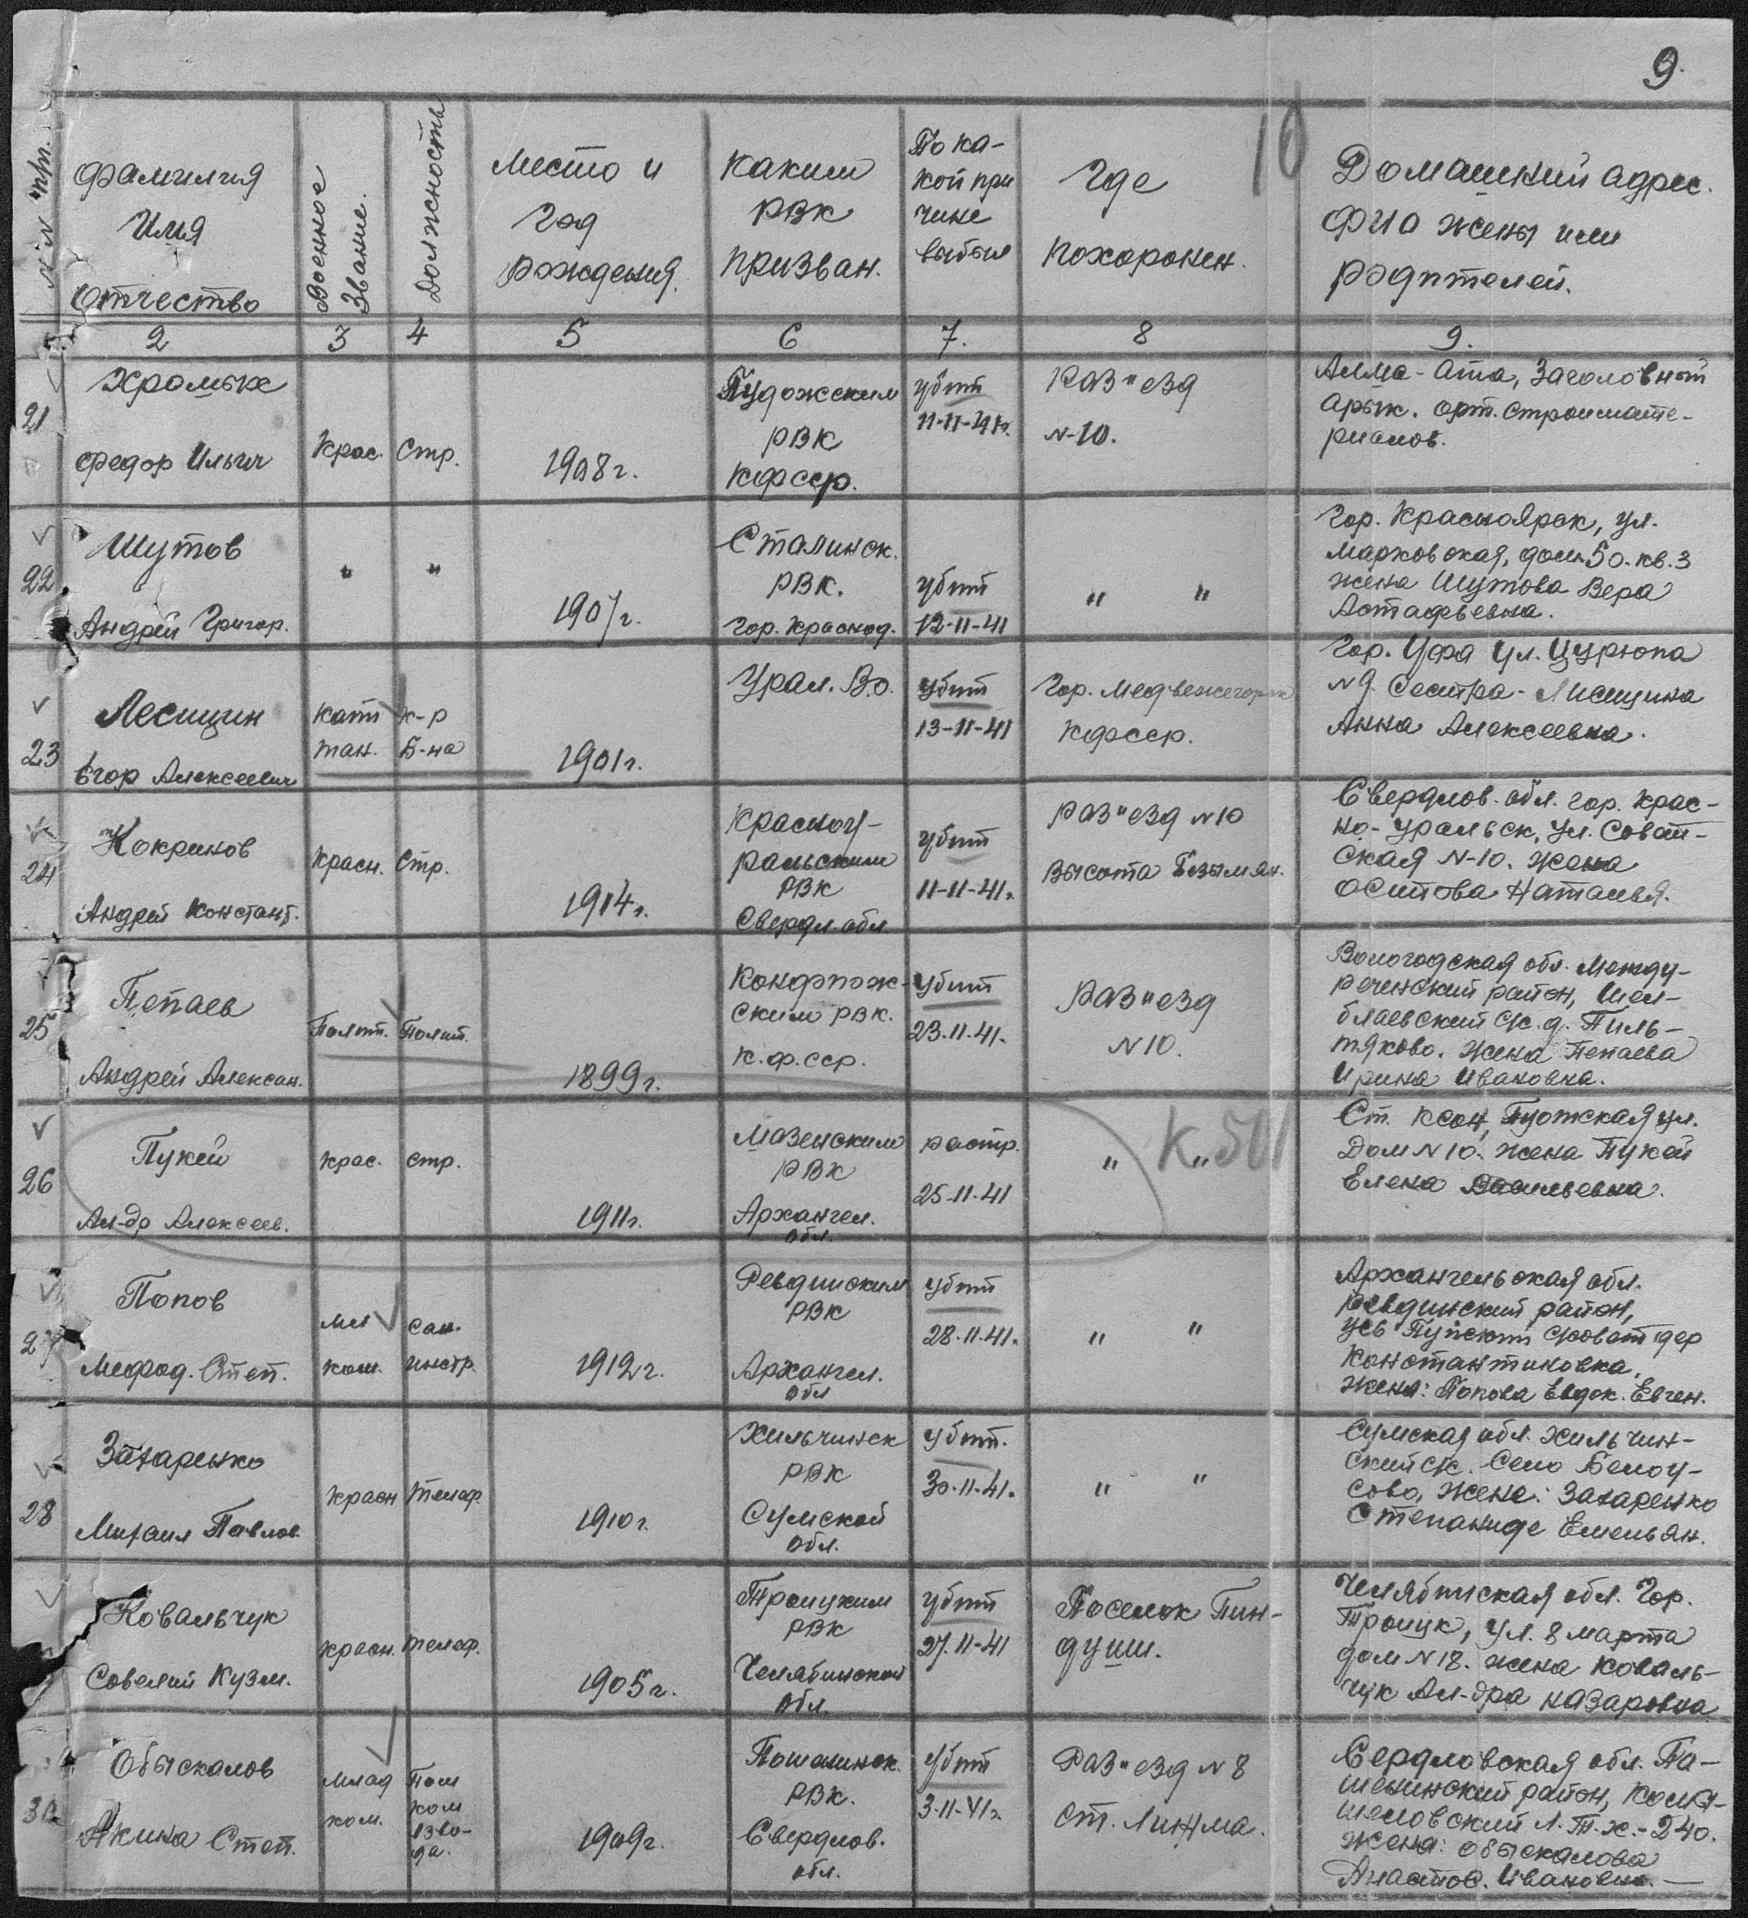 9.
10
№№ п/п.
Фамилия
Имя
Отчество
Военное
Звание.
Должность
Место и
Год
рождения.
Каким
РВК
призван.
По ка-
кой при
чине
выбыл
Где
похоронен.
Домашний адрес.
ФИО жены или
родителей.
2 3 4 5 6 7. 8 9.
21
Хромых
Федор Ильич
Крас. Стр.
1908 г.
Пудожским
РВК
КФССР.
убит
11-11-41г.
Раз"езд
N-10.
Алма-Ата, Заголовный
Арык. орт. Строимате-
риалов.
22
Шутов
Андрей Григор.
" "
1907г.
Сталинск.
РВК.
Гор. Краснод.
убит
12-11-41
" "
Гор. Красноярск, ул.
Марковская, дом 50. кв. 3
жена Шутова Вера
Астафьевна.
23
Лесицин
Егор Алексеевич
Капи К-р
тан. Б-на
1901г.
Урал. В.О.
убит
13-11-41
Гор. Медвежегорск
КФССР.
Гор. Уфа ул. Цурюпа
N9 Сестра - Лисицина
Анна Алексеевна.
24
Кокринов
Андрей Констант.
Красн. Стр.
1914г.
Красноу-
ральским
РВК
Свердл. обл
убит
11-11-41г.
Раз"езд N10
Высота Безымян.
Свердлов. обл. гор. Крас-
но-Уральск, ул. Совет-
ская N-10. жена
Осипова Наталья.
25
Пепаев
Андрей Алексан.
Полит. Полит.
1899г.
Кондопож-
ским РВК.
К.Ф.ССР.
убит
23.11.41.
Раз"езд
N10.
Вологодская обл. Между-
реченский район, Шей-
блаевский с/с. д. Пиль-
тяково. жена Пепаева
Ирина Ивановна.
26
Пукей
Ал-др Алексеев.
Крас. Стр.
1911г.
Мезенским
РВК
Архангел.
обл.
расстр.
25-11-41
" "
Ст. Ксон, ул.
Дом N10. жена Пукей
Елена Васильевна.
27
Попов
Мефод. Степ.
мл сан.
ком. инстр.
1912г.
Ревдинским
РВК
Архангел.
обл
убит
28-11-41.
" "
Архангельская обл.
Ревдинский район,
Усь Пуйский Совет дер
Константиновка,
жена: Попова Евдок. Евген.
28
Захаренко
Михаил Павлов.
Красн Телеф.
1910г.
Хильчинск
РВК
Сумской
обл.
убит.
30-11-41.
" "
Сумская обл. Хильчин-
ский с/с. село Белоу-
сово, жене: Захаренко
Степаниде Емельян.
Ковальчук
Совелий Кузм.
Красн. Телеф.
1905г.
Троицким
РВК
Челябинской
обл.
убит
27.11-41
Поселок Пин-
души.
Челябинская обл. Гор.
Троицк, ул. 8 марта
дом N18. жена Коваль-
чук Ал-дра Назаровна
30
Обыскалов
Акина Степ.
млад Пом
ком. ком
взво-
да.
1909г.
Пошелинск.
РВК.
Свердлов.
обл.
убит
3-11-41г.
Раз"езд N 8
ст. Лижма.
Сердловская обл. Па-
шелинский район,
Л.Т.Х. - 240.
жена: Обыскалова
Анастас. Ивановна.